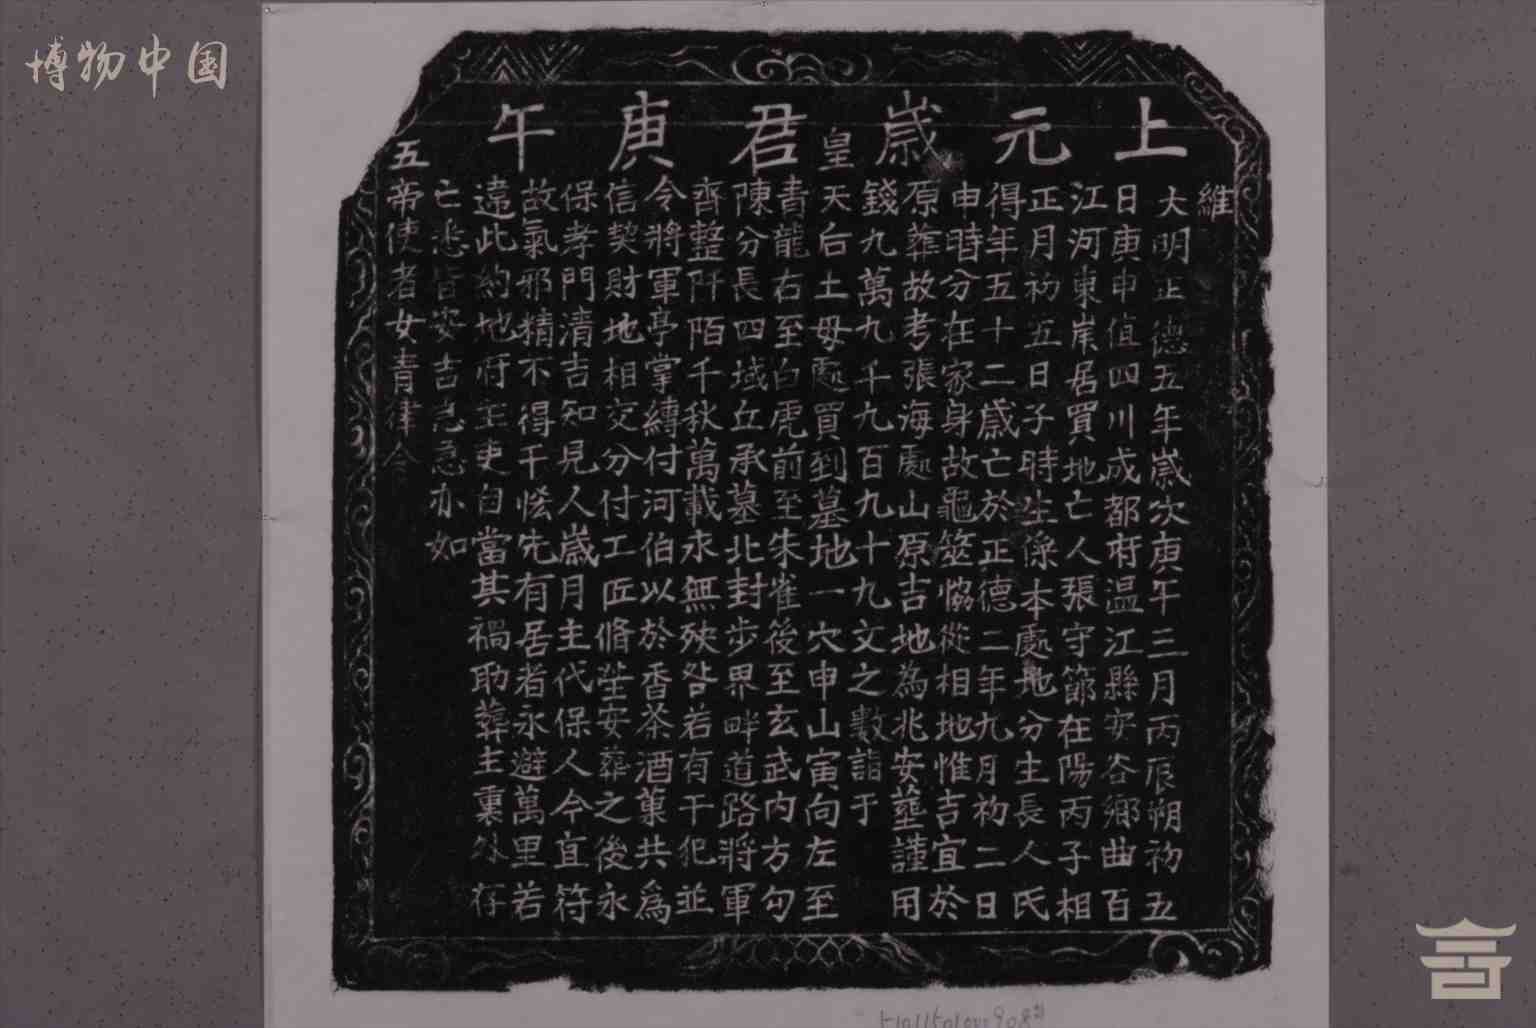 博物中国
上元歲君庚午
維
大明正德五年歲次庚午三月丙辰朔初五
日庚申值四川成都府溫江縣安谷鄉曲百
江河東岸居買地亡人張守節在陽丙子相
正月初五日子時生係本處地分生長人氏
得年五十二歲亡於正德二年九月初二日
申時分在家身故龜筮恊從相地惟吉宜於
原葬故考張海處山原吉地為兆安塟謹用
錢九萬九千九百九十九文之數詣于
皇天后土母處買到墓地一穴申山寅向左至
青龍右至白虎前至朱雀後至玄武內方勾
陳分長四域丘承墓北封步界畔道路將軍
齊整阡陌千秋萬載永無殃咎若有干犯並
令將軍亭掌縛付河伯以於香茶酒菓共為
信契財地相交分付工匠脩塋安葬之後永
保孝門清吉知見人歲月主代保人今直符
故氣邪精不得干恡先有居者永避萬里若
違此約地府主吏自當其禍助葬主裏外存
亡悉皆安吉急急亦如
五帝使者女青律令